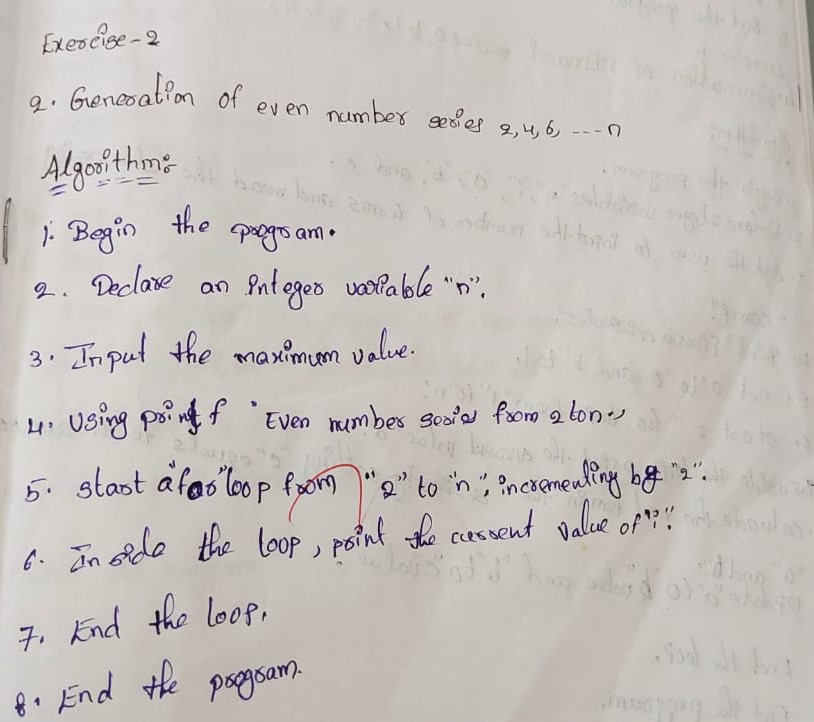 Exercise-2
2. Generation of even number series 2,4,6, ---- n
Algorithm:-
1. Begin the program.
2. Declare an integer variable "n".
3. Input the maximum value.
4. Using printf "Even number series from 2 to n."
5. start a "for" loop from "2" to "n", incrementing by "2".
6. Inside the loop, print the current value of "i".
7. End the loop.
8. End the program.